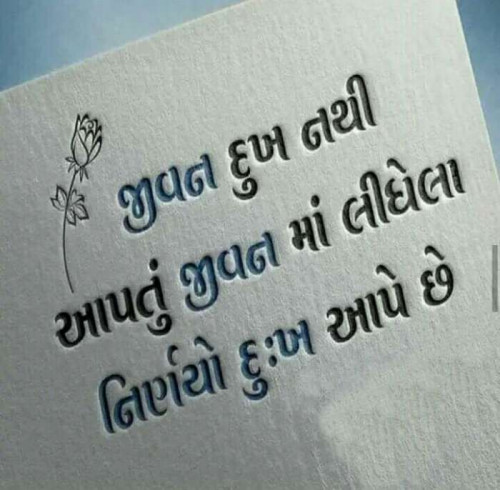 જીવન દુખ નથી
આપતું જીવન માં લીધેલા
નિર્ણયો દુઃખ આપે છે